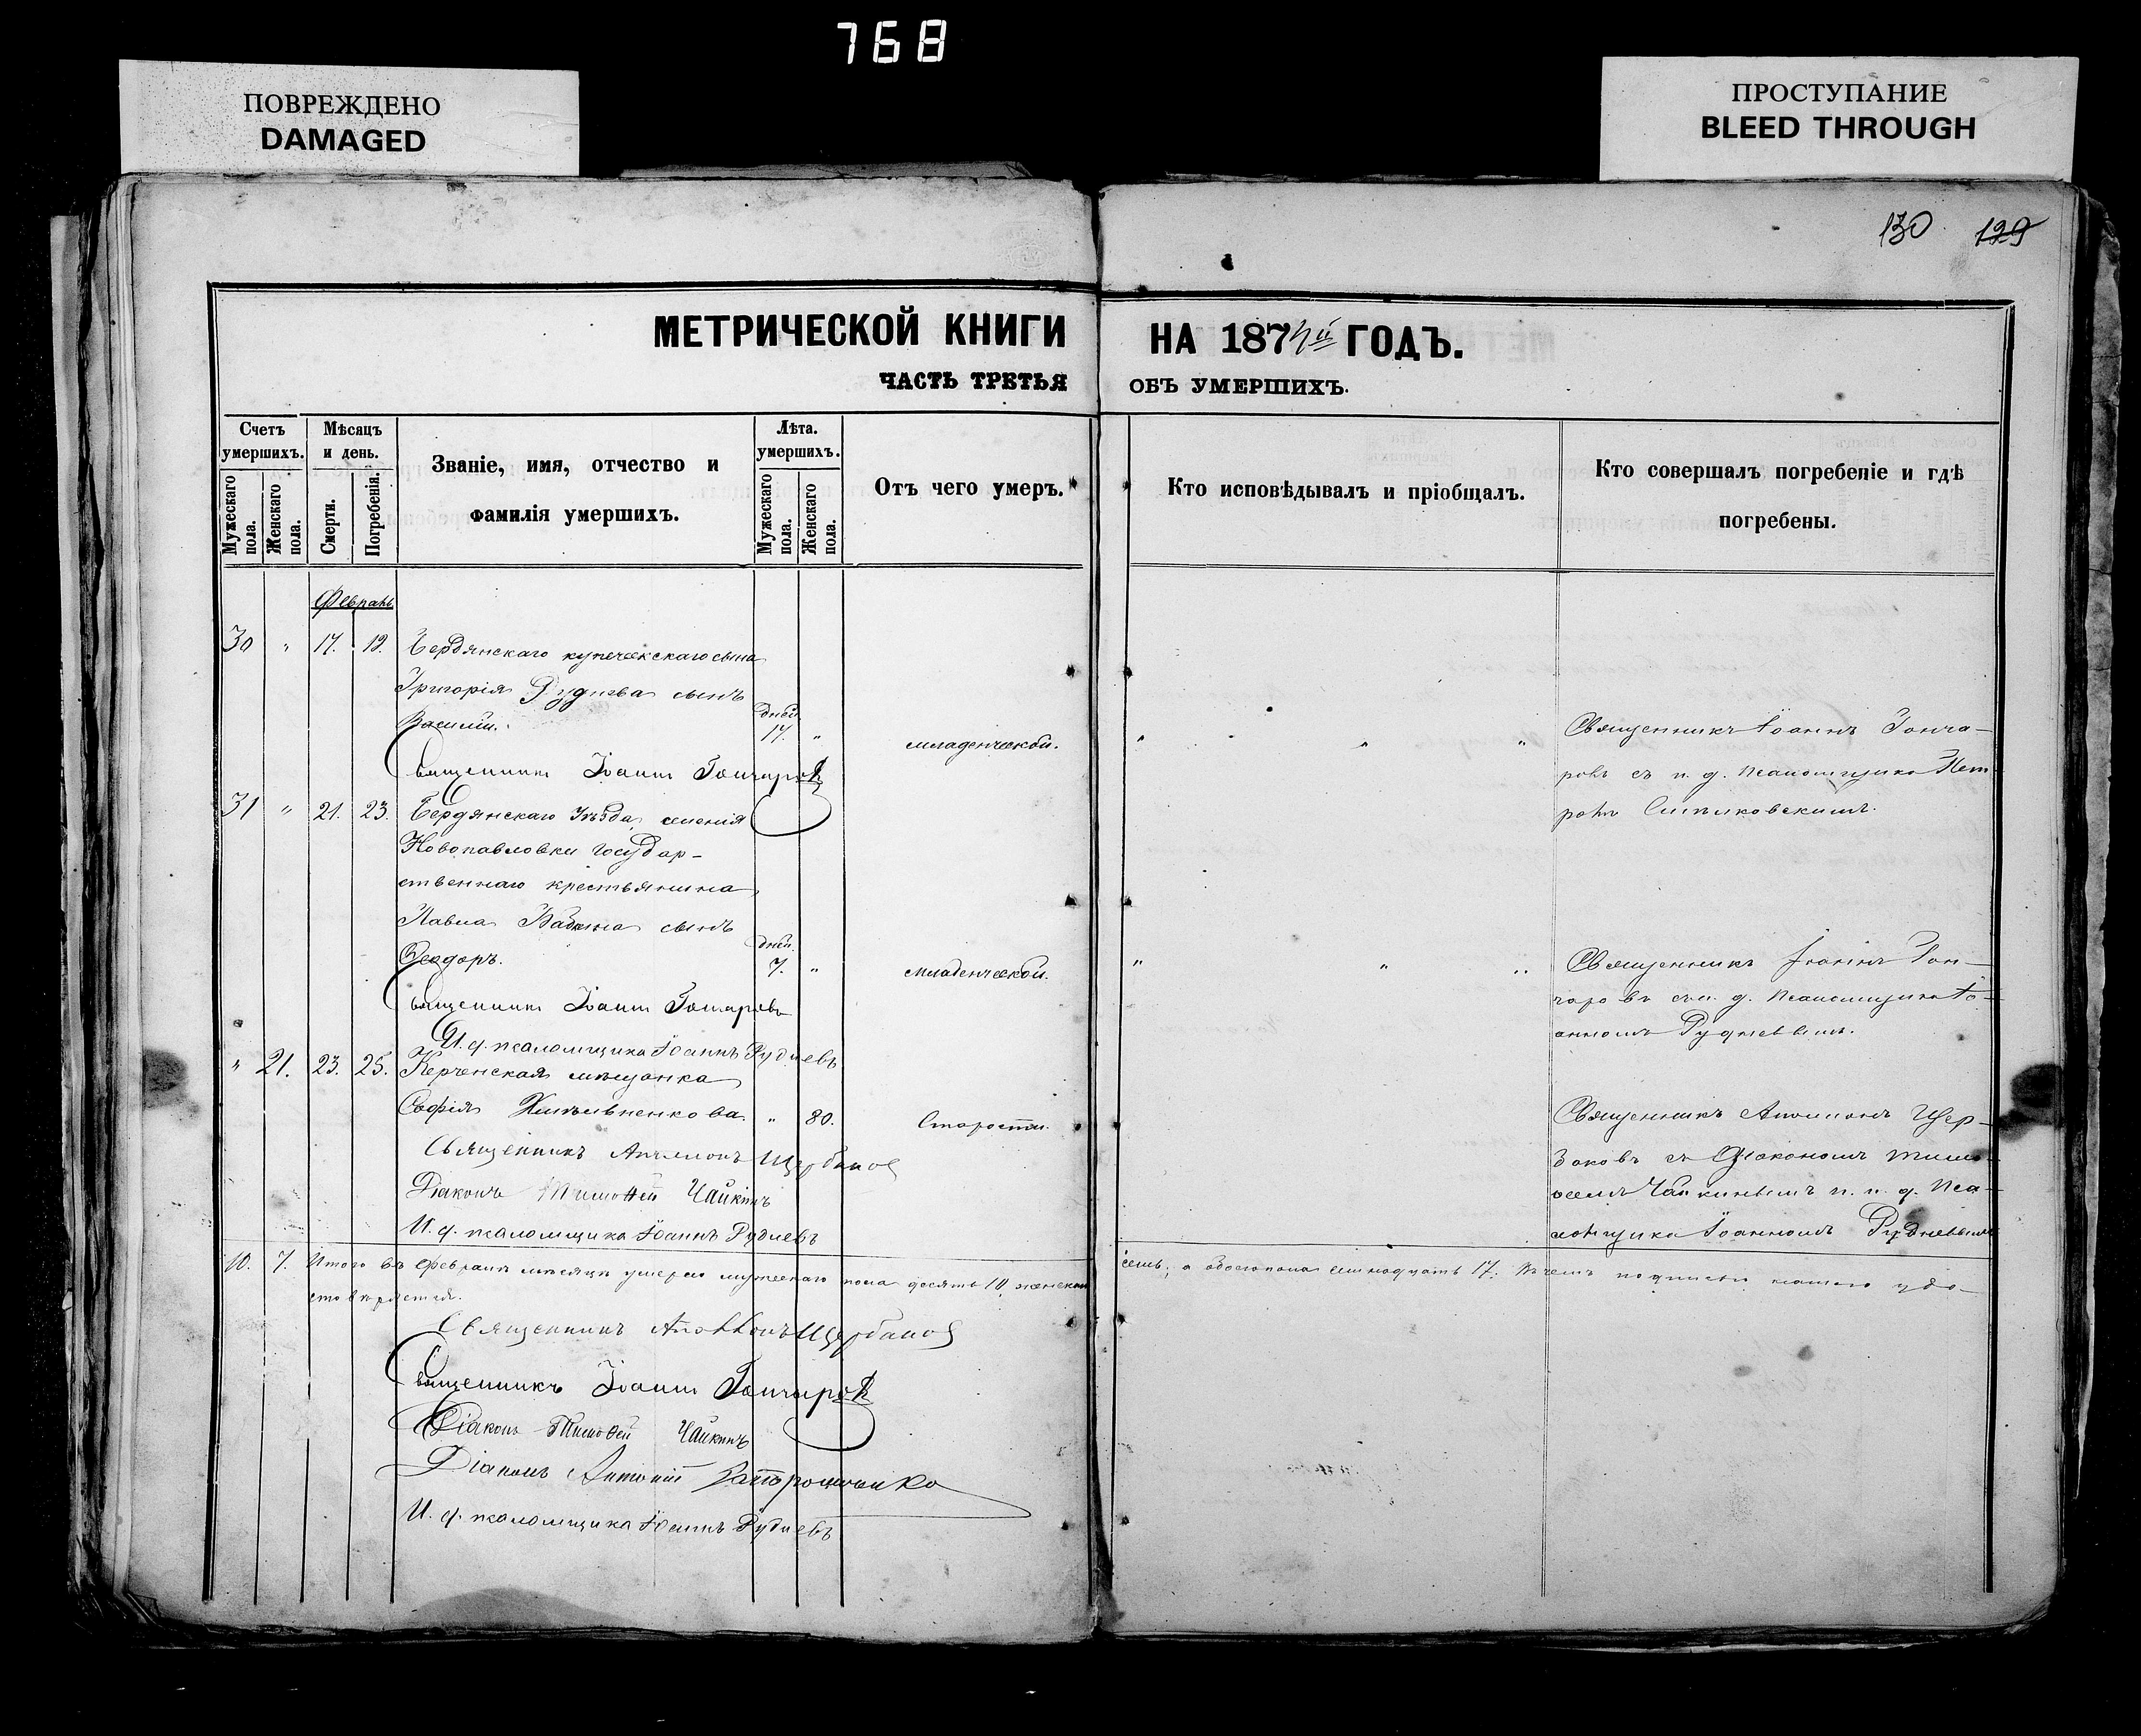 768
ПОВРЕЖДЕНО
DAMAGED
ПРОСТУПАНИЕ
BLEED THROUGH
130 129
МЕТРИЧЕСКОЙ КНИГИ НА 1874й ГОДЪ.
ЧАСТЬ ТРЕТЬЯ ОБЪ УМЕРШИХЪ.
Счетъ умершихъ.
Мужескаго пола.
Женскаго пола.
Мѣсяцъ и день.
Смерти.
Погребенія.
Званіе, имя, отчество и
фамилія умершихъ.
Лѣта умершихъ.
Мужескаго пола.
Женскаго пола.
Отъ чего умеръ.
Кто исповѣдывалъ и пріобщалъ.
Кто совершалъ погребеніе и гдѣ
погребены.
Февраль
30 " 17. 19. Бердянскаго купеческаго сына
Григорія Руднева сынъ
Василій. дней 17. " младенческой. " " "
Священникъ Іоаннъ Гончаровъ
Священникъ Іоаннъ Гонча-
ровъ съ и. д. псаломщика Пет-
ромъ
31 " 21. 23. Бердянскаго Уѣзда, селенія
Новопавловки Государ-
ственнаго крестьянина
Павла Бабкина сынъ
Ѳеодоръ. дней 7. " младенческой. " " "
Священникъ Іоаннъ Гончаровъ
И. д. псаломщика Іоаннъ Рудневъ
Священникъ Іоаннъ Гон-
чаровъ съ и. д. псаломщика Іо-
анномъ Рудневымъ.
" 21. 23. 25. Керченская мѣщанка
Софія " 80. Старости.
Священникъ Аполлонъ Щербаковъ
Діаконъ Тимоѳей Чайкинъ
И. д. псаломщика Іоаннъ Рудневъ
Священникъ Аполлонъ Щер-
баковъ съ Діакономъ Тимо-
ѳеемъ Чайкинымъ и и. д. пса-
ломщика Іоанномъ Рудневымъ
10. 7. Итого въ Февралѣ мѣсяцѣ умерло мужескаго пола десять 10, женскаго семь, а обоего пола семнадцать 17. Въ чемъ подписомъ нашимъ удо-
стовѣряемъ.
Священникъ Аполлонъ Щербаковъ
Священникъ Іоаннъ Гончаровъ
Діаконъ Тимоѳей Чайкинъ
Діаконъ Антоній
И. д. псаломщика Іоаннъ Рудневъ